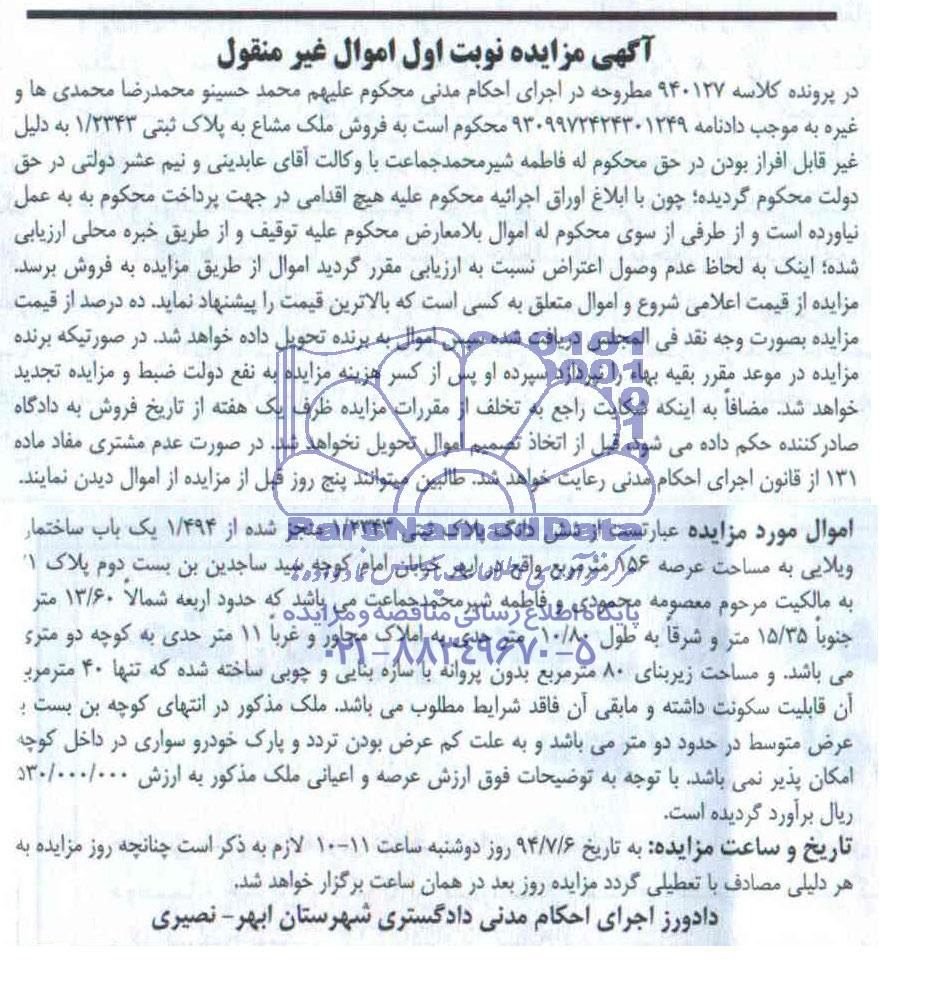 آگهی مزایده نوبت اول اموال غیر منقول
در پرونده کلاسه ۹۴۰۱۲۷ مطروحه در اجرای احکام مدنی محکوم علیهم محمد حسینو محمدرضا محمدی ها و
غیره به موجب دادنامه ۹۳۰۹۹۷۲۴۲۴۳۰۱۲۴۹ محکوم است به فروش ملک مشاع به پلاک ثبتی ۱/۲۳۴۳ به دلیل
غیر قابل افراز بودن در حق محکوم له فاطمه شیرمحمدجماعت با وکالت آقای عابدینی و نیم عشر دولتی در حق
دولت محکوم گردیده؛ چون با ابلاغ اوراق اجرائیه محکوم علیه هیچ اقدامی در جهت پرداخت محکوم به به عمل
نیاورده است و از طرفی از سوی محکوم له اموال بلامعارض محکوم علیه توقیف و از طریق خبره محلی ارزیابی
شده؛ اینک به لحاظ عدم وصول اعتراض نسبت به ارزیابی مقرر گردید اموال از طریق مزایده به فروش برسد.
مزایده از قیمت اعلامی شروع و اموال متعلق به کسی است که بالاترین قیمت را پیشنهاد نماید. ده درصد از قیمت
مزایده بصورت وجه نقد فی المجلس دریافت شده سپس اموال به برنده تحویل داده خواهد شد. در صورتیکه برنده
مزایده در موعد مقرر بقیه بهاء را نپردازد سپرده او پس از کسر هزینه مزایده به نفع دولت ضبط و مزایده تجدید
خواهد شد. مضافاً به اینکه شکایت راجع به تخلف از مقررات مزایده ظرف یک هفته از تاریخ فروش به دادگاه
صادرکننده حکم داده می شود، قبل از اتخاذ تصمیم اموال تحویل نخواهد شد. در صورت عدم مشتری مفاد ماده
۱۳۱ از قانون اجرای احکام مدنی رعایت خواهد شد. طالبین میتوانند پنج روز قبل از مزایده از اموال دیدن نمایند.
ParsNamadData
اموال مورد مزایده عبارتست از شش دانگ پلاک ثبتی ۱/۲۳۴۳ متجز شده از ۱/۴۹۴ یک باب ساختمان
ویلایی به مساحت عرصه ۱۵۶ مترمربع واقع در ابهر خیابان امام کوچه سید ساجدین بن بست دوم پلاک
به مالکیت مرحوم معصومه محمودی و فاطمه شیرمحمدجماعت می باشد که حدود اربعه شمالاً ۱۳/۶۰ متر
پایگاه اطلاع رسانی مناقصه و مزایده
جنوباً ۱۵/۳۵ متر و شرقاً به طول ۱۰/۸۰ متر حدی به املاک مجاور و غرباً ۱۱ متر حدی به کوچه دو متری
۰۲۱-۸۸۳۴۹۶۷۰-۵
می باشد. و مساحت زیربنای ۸۰ مترمربع بدون پروانه با سازه بنایی و چوبی ساخته شده که تنها ۴۰ مترمربع
آن قابلیت سکونت داشته و مابقی آن فاقد شرایط مطلوب می باشد. ملک مذکور در انتهای کوچه بن بست
عرض متوسط در حدود دو متر می باشد و به علت کم عرض بودن تردد و پارک خودرو سواری در داخل کوچه
امکان پذیر نمی باشد. با توجه به توضیحات فوق ارزش عرصه و اعیانی ملک مذکور به ارزش ۵۳۰/۰۰۰/۰۰۰
ریال برآورد گردیده است.
تاریخ و ساعت مزایده: به تاریخ ۹۴/۷/۶ روز دوشنبه ساعت ۱۱-۱۰ لازم به ذکر است چنانچه روز مزایده به
هر دلیلی مصادف با تعطیلی گردد مزایده روز بعد در همان ساعت برگزار خواهد شد.
دادورز اجرای احکام مدنی دادگستری شهرستان ابهر- نصیری